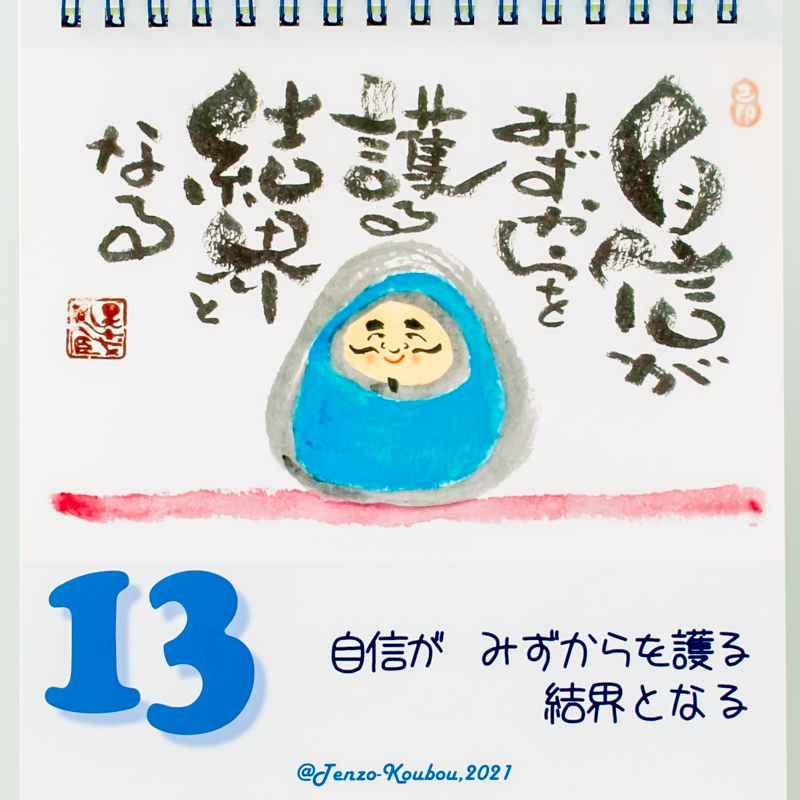 自信が
みずからを
護る
結界と
なる
13
自信が みずからを護る
結界となる
@Tenzo-Koubou,2021